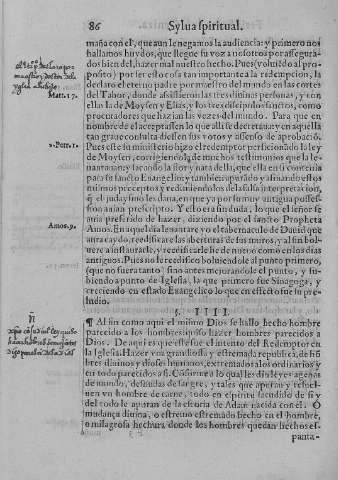 86 Sylua spiritual.
maña con el, que aun le negamos la audiencia: y primero nos
hallamos huydos, que llegue su voz a nosotros por assegura-
dos bien del, hazer mal nuestro hecho. Pues (voluiẽdo al pro-
posito) por ser esto cosa tan importante a la redempcion, la
declaro el eterno padre por muestro del mundo en las cortes
Matt. 17.
del Tabor, donde assistieron las tres diuinas personas, y con
ellas la de Moysen y Elias, y los tres discipulos sanctos, como
procuradores que hazian las vezes del mundo. Para que en
nombre del acceptassen lo que alli se decretaua: y en aquella
tan graue consulta diessen sus votos y assenso de aprobació
2. Petr. 1.
Pues este su ministerio hizo el redemptor perficionãdo la ley
de Moysen, corrigiendola de muchos testimonios que la le-
uantauan: y sacando la flor y nata della, que ella en si contenia
para su sancto Euangelio: y tambien apurado y afinando estos
mismos preceptos y reduziendolos de la falsa interpretacion,
q̃ el judaysmo les daua, en que ya por su muy antigua posses-
sion auian prescripto. Y esto era sin duda, lo que el señor se
auia preferido de hazer, diziendo por el sancto Propheta
Amos. 9.
Amos. En aquel dia leuantare yo el tabernaculo de Dauid que
aura caydo, reedificare las aberturas de sus muros, y al fin bol-
uere a instaurarle, y reedificarle he de nueuo como en los dias
antiguos. Pues no le reedifico boluiendole al punto primero,
(que no fuera tanto) sino antes mejorandole el punto, y su-
biendo a punto de Iglesia, la que primero fue Sinagoga, y
creciendo en estado Euangelico lo que en effecto fue su pre-
ludio.
§. IIII.
¶ Al fin como aqui el mismo Dios se hallo hecho hombre
parecido a los hombres: assi quiso hazer hombres parecidos a
Dios. De aqui es que esse fue el intento del Redemptor en
la Iglesia. Hazer vna grandiosa y estremada republica, de hõ
bres diuinos y dioses humanos, estremados a los ordinarios y
en todo parecidos a si. Conforme a lo qual les dio leyes agenas
de mundo, desnudas de sangre, y tales que aperan y restuel-
uen vn hombre de carne, todo en espiritu sacudido de si y
del todo le apuran de la escoria de Adan nacida con el. O
mudança diuina, o estremo estremado hecho en el hombre,
o milagrosa hechura donde los hombres quedan hechos es-
panta-